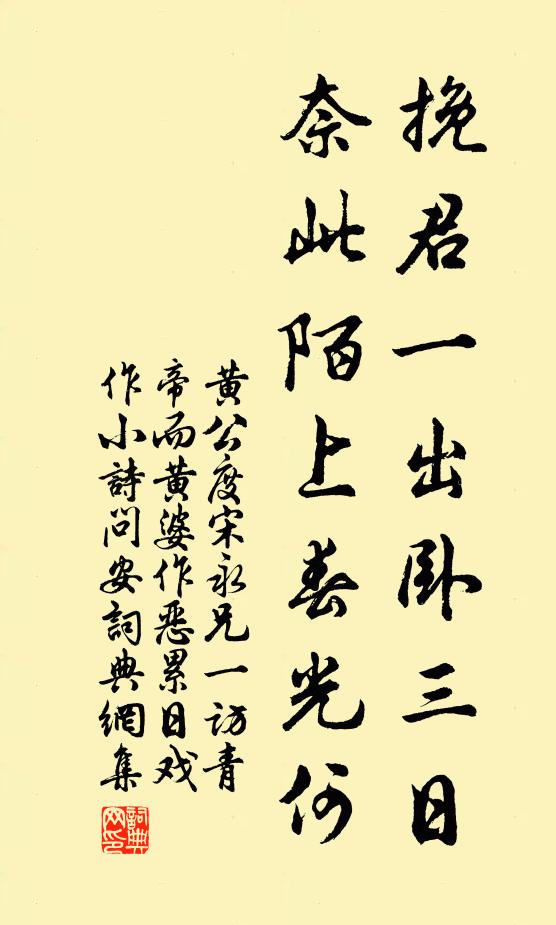 挽君一出卧三日
奈此陌上春光何
黄公度宋永兄一访青
帝而黄婆作恶累日戏
作小詩问安詞典網集
詞典网印